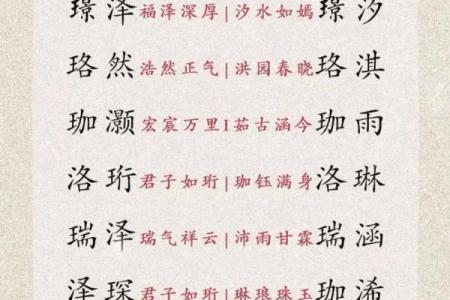 璟泽 福泽深厚|汐水如嫣 璟汐
珞然 浩然正气|洪园春晓 珞淇
珈灏 宏宸万里I茹古涵今 珈雨
洛珩 君子如珩|珈钰满身 洛琳
瑞泽 瑞气祥云|沛雨甘霖 瑞涵
泽琛 君子如珩|琳琅珠玉 珈浠